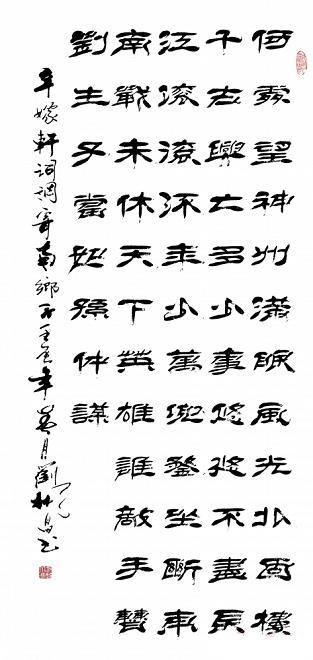 何處望神州滿眼風光北固樓
千古興亡多少事悠悠不盡長
江滾滾流年少萬兜鍪坐斷東
南戰未休天下英雄誰敵手曹
劉生子當如孫仲謀
辛稼軒詞調寄南鄉子年春月劉林昌书